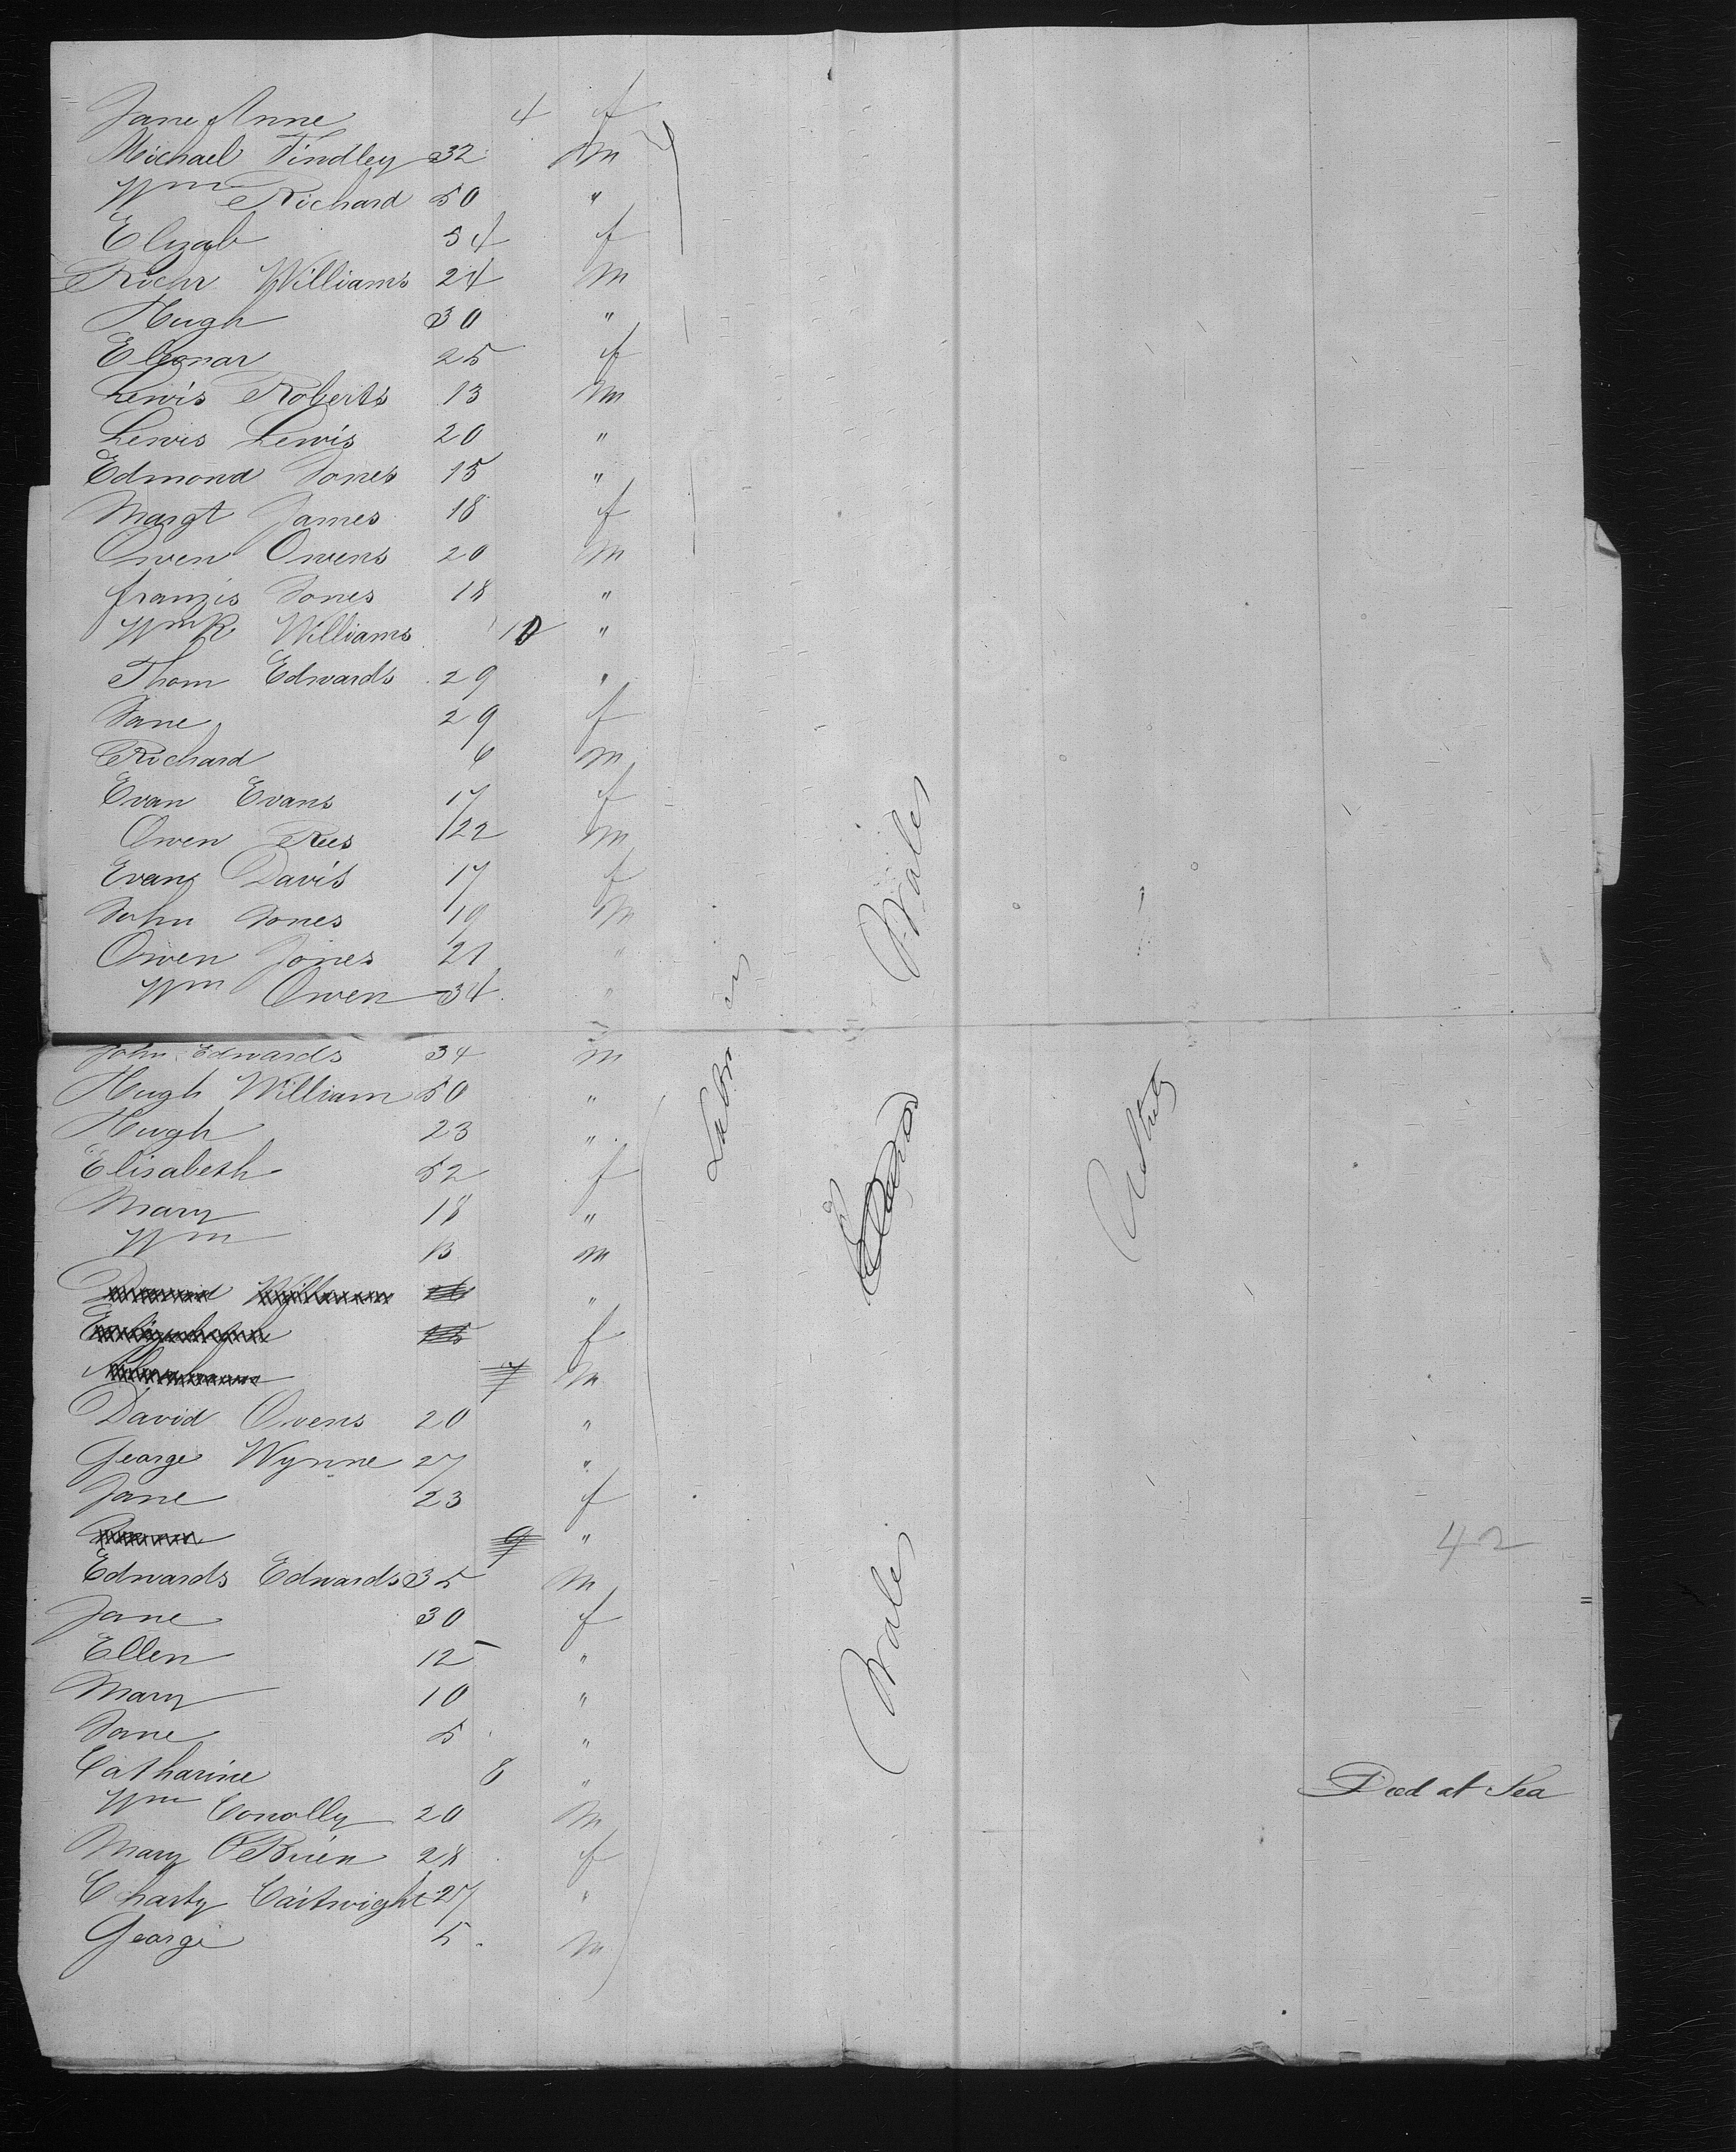 Jane Anne 4 f
Michael Findley 32 m
Wm Richard 50 "
Elizab 54 f
Richr Williams 24 m
Hugh 30 "
Eleonar 25 f
Lewis Roberts 13 m
Lewis Lewis 20 "
Edmond Jones 15 "
Margt James 18 f
Owen Owens 20 m
franzis Jones 18 "
Wm R. Williams 10 "
Thom Edwards 29 "
Jane 29 f
Richard 6 m
Evan Evans 17 f
Owen Rees 22 m
Evans Davis 17 f
John Jones 19 m
Owen Jones 21 "
Wm Owen 34 "
Wales
John Edwards 34 m
Hugh William 50 "
Hugh 23 "
Elisabeth 52 f
Mary 18 "
Wm 13 m
"
f
7 m
David Owens 20 "
George Wynne 27 "
Jane 23 f
9 "
Edwards Edwards 35 m
42
Jane 30 f
Ellen 12 "
Mary 10 "
Jane 5 "
Wales
Catharine 8 " Died at Sea
Wm Conolly 20 m
Mary O'Brien 28 f
Charty Cartwright 27 "
George 5 m